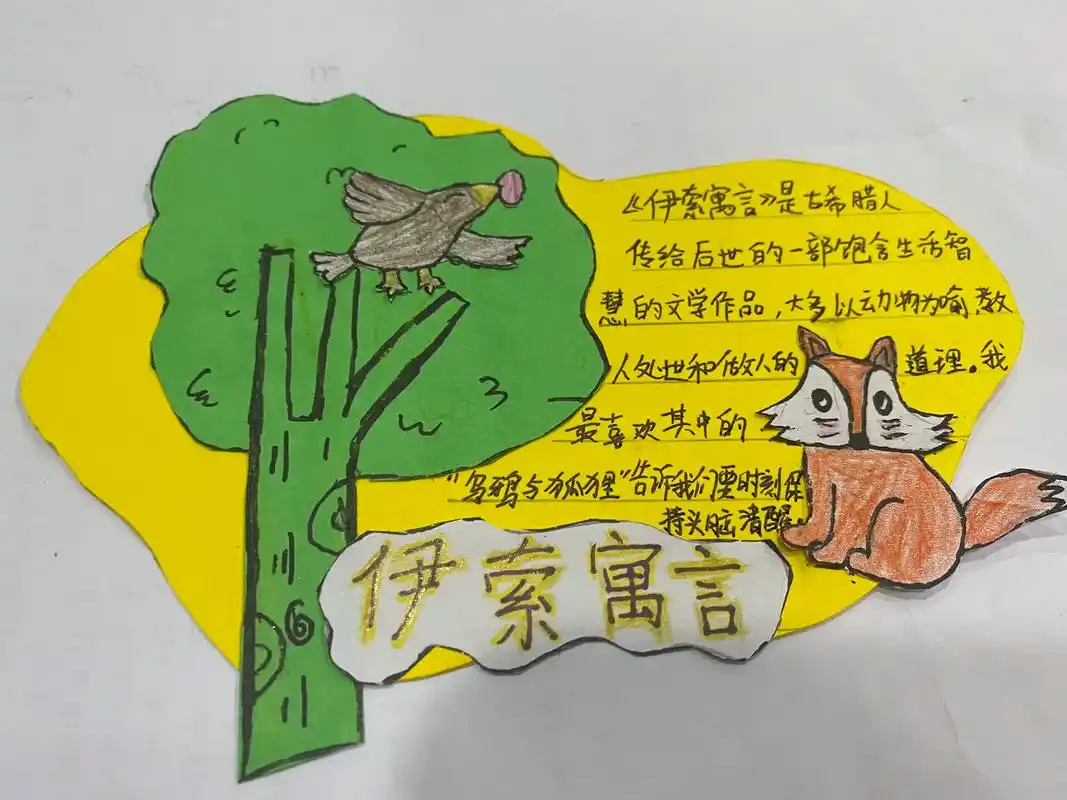 《伊索寓言》是古希腊人
传给后世的一部饱含生活智
慧的文学作品，大多以动物为喻教
人处世和做人的道理。我
最喜欢其中的
"乌鸦与狐狸"告诉我们要时刻保
持头脑清醒。
伊索寓言